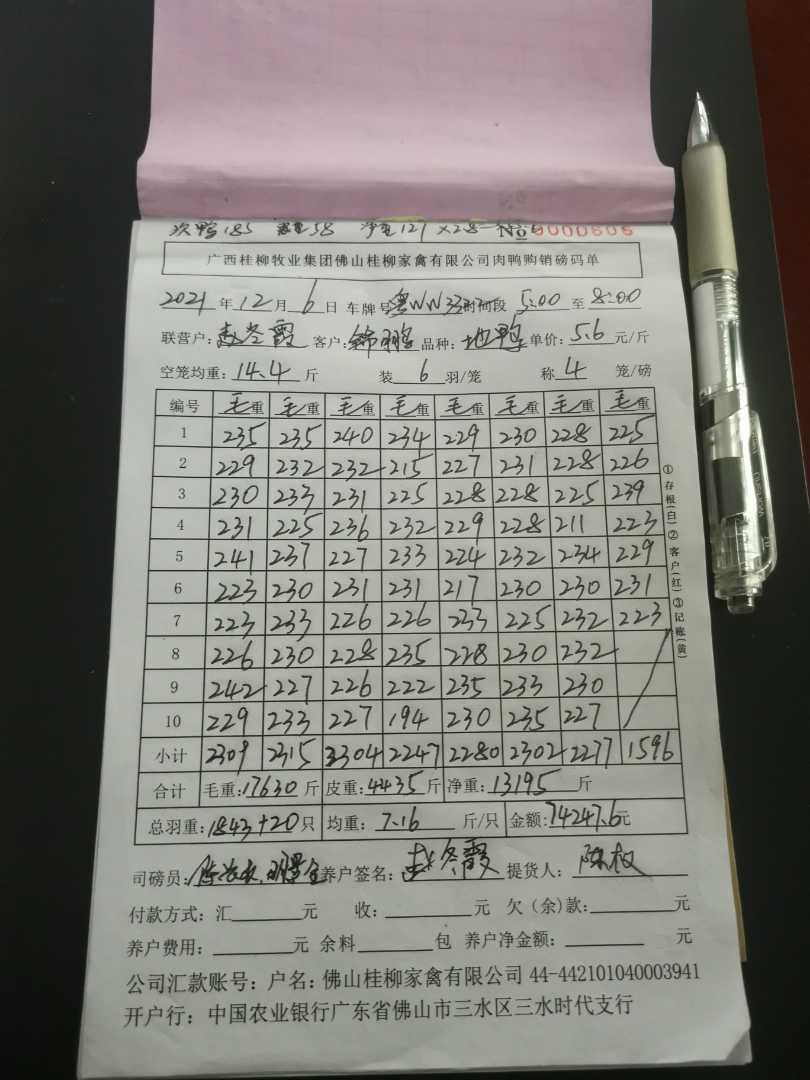 次鸭185 毛重58 净重127 ×28 № 0000606
广西桂柳牧业集团佛山桂柳家禽有限公司肉鸭购销磅码单
2021年12月6日 车牌号 粤WN33 时间段 5:00 至 8:00
联营户:赵冬霞 客户:锦鹏 品种:地鸭 单价:5.6元/斤
空笼均重:14.4斤 装6羽/笼 称4笼/磅
编号 毛重 毛重 毛重 毛重 毛重 毛重 毛重 毛重
1 235 235 240 234 229 230 228 225
2 229 232 232 215 227 231 228 226
3 230 233 231 225 228 228 225 239
4 231 225 236 232 229 228 211 223
5 241 237 227 233 224 232 234 229
6 223 230 231 231 217 230 230 231
7 223 233 226 226 233 225 232 223
8 226 230 228 235 228 230 232
9 242 227 226 222 235 233 230
10 229 233 227 194 230 235 227
小计 2309 2315 2304 2247 2280 2302 2277 1596
合计 毛重:17630斤 皮重:4435斤 净重:13195斤
总羽重:1843+20只 均重:7.16斤/只 金额:74247.6元
司磅员: 养户签名:赵冬霞 提货人:陈权
付款方式:汇元 收:元 欠(余)款:元
养户费用:元 余料包 养户净金额:元
公司汇款账号:户名:佛山桂柳家禽有限公司 44-442101040003941
开户行:中国农业银行广东省佛山市三水区三水时代支行
①存根(白)②客户(红)③记账(黄)